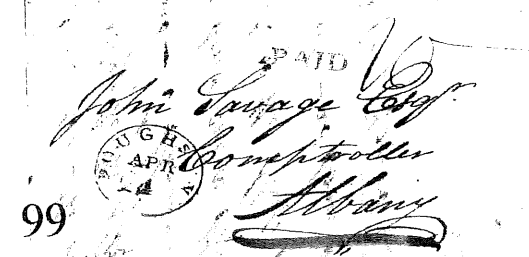 PAID
John Savage Esqr.
Comptroller
Albany
POUGHS
APR
99